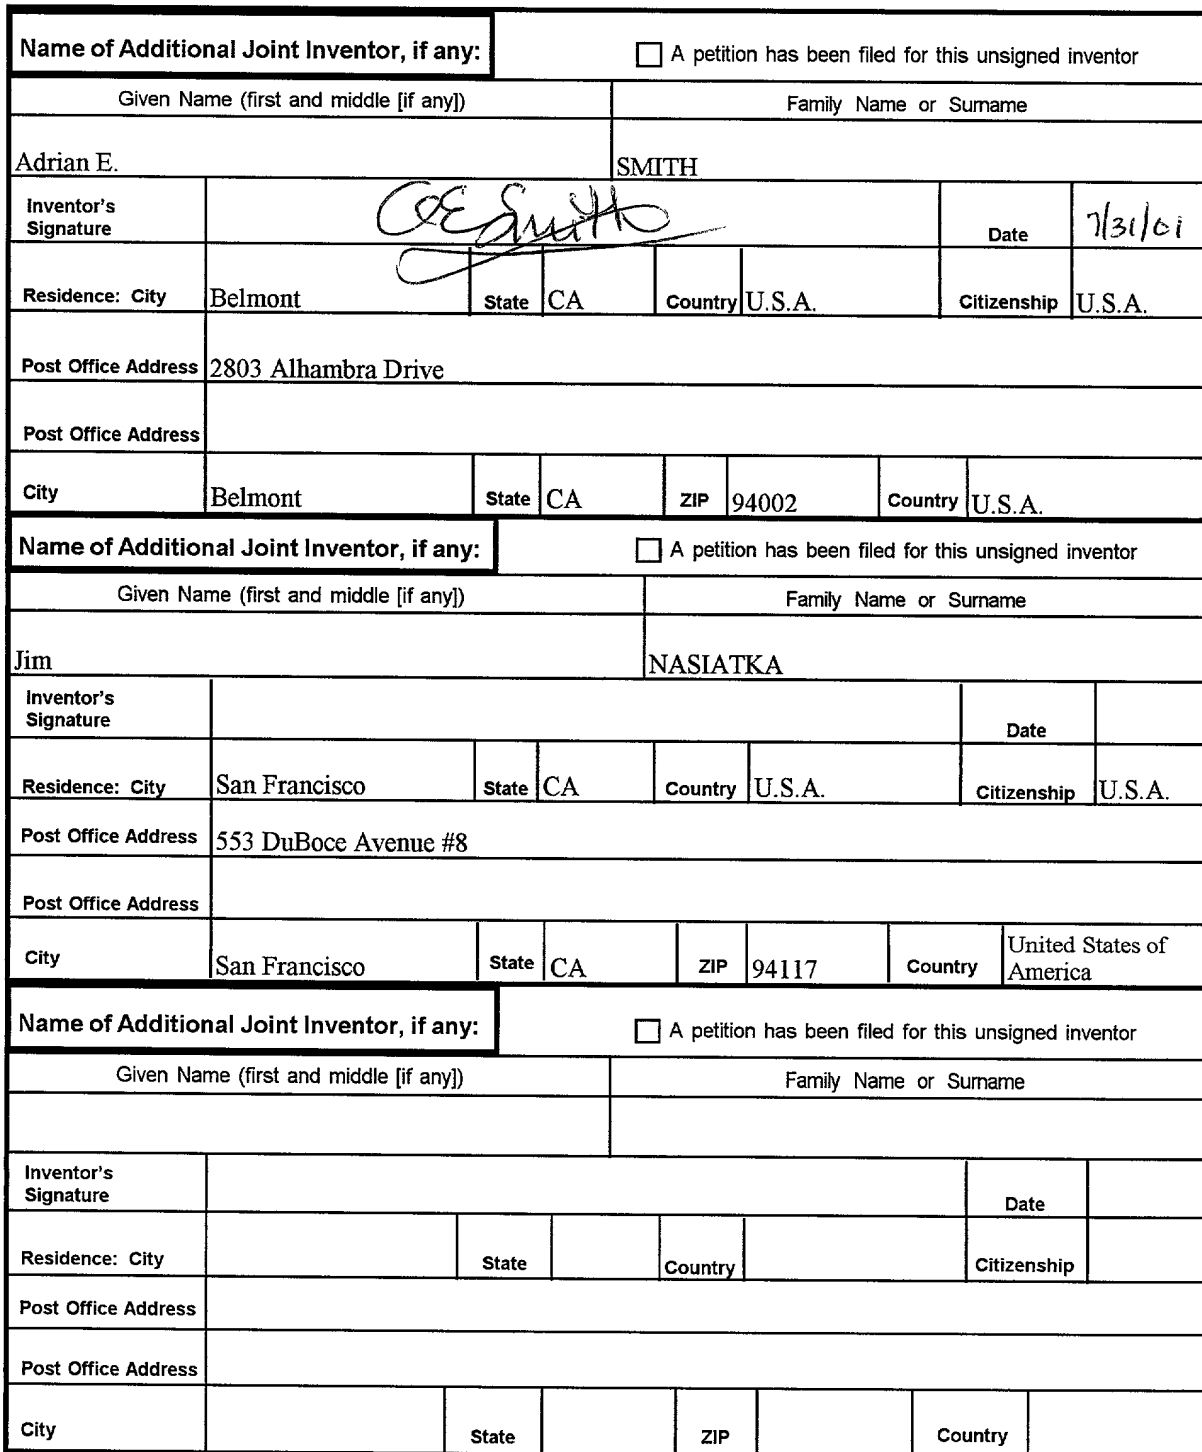 Name of Additional Joint Inventor, if any: A petition has been filed for this unsigned inventor
Given Name (first and middle [if any]) Family Name or Surname
Adrian E. SMITH
Inventor's
Signature AE Smith Date 7/31/01
Residence: City Belmont State CA Country U.S.A. Citizenship U.S.A.
Post Office Address 2803 Alhambra Drive
Post Office Address
City Belmont State CA ZIP 94002 Country U.S.A.
Name of Additional Joint Inventor, if any: A petition has been filed for this unsigned inventor
Given Name (first and middle [if any]) Family Name or Surname
Jim NASIATKA
Inventor's
Signature Date
Residence: City San Francisco State CA Country U.S.A. Citizenship U.S.A.
Post Office Address 553 DuBoce Avenue #8
Post Office Address
City San Francisco State CA ZIP 94117 Country United States of
America
Name of Additional Joint Inventor, if any: A petition has been filed for this unsigned inventor
Given Name (first and middle [if any]) Family Name or Surname
Inventor's
Signature Date
Residence: City State Country Citizenship
Post Office Address
Post Office Address
City State ZIP Country